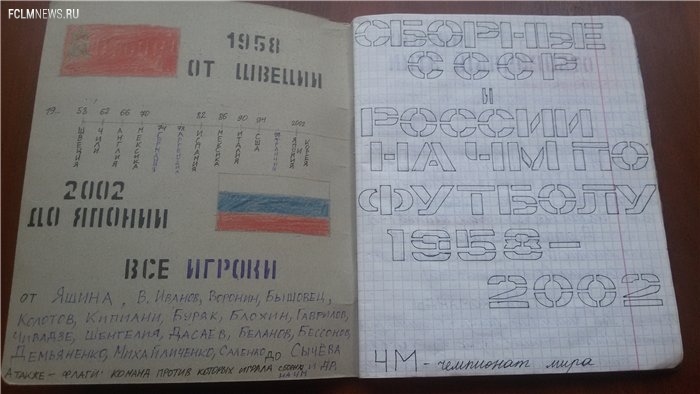 FCLMNEWS.RU
1958
ОТ ШВЕЦИИ
19... 58 62 66 70 74 78 82 86 90 94 2002
ШВЕЦИЯ
ЧИЛИ
АНГЛИЯ
МЕКСИКА
ГЕРМАНИЯ
АРГЕНТИНА
ИСПАНИЯ
МЕКСИКА
ИТАЛИЯ
США
ЯПОНИЯ
КОРЕЯ
2002
ДО ЯПОНИИ
ВСЕ ИГРОКИ
ОТ ЯШИНА, В. ИВАНОВ, ВОРОНИН, БЫШОВЕЦ,
КОЛОТОВ, КИПИАНИ, БУРЯК, БЛОХИН, ГАВРИЛОВ,
ЧИВАДЗЕ, ШЕНГЕЛИЯ, ДАСАЕВ, БЕЛАНОВ, БЕССОНОВ,
ДЕМЬЯНЕНКО, МИХАЙЛИЧЕНКО, САЛЕНКО ДО СЫЧЁВА
А ТАКЖЕ - ФЛАГИ: КОМАНД ПРОТИВ КОТОРЫХ ИГРАЛА СБОРНАЯ НА ЧМ И ДР.
СБОРНЫЕ
СССР
И
РОССИИ
НА ЧМ ПО
ФУТБОЛУ
1958-
2002
ЧМ - чемпионат мира